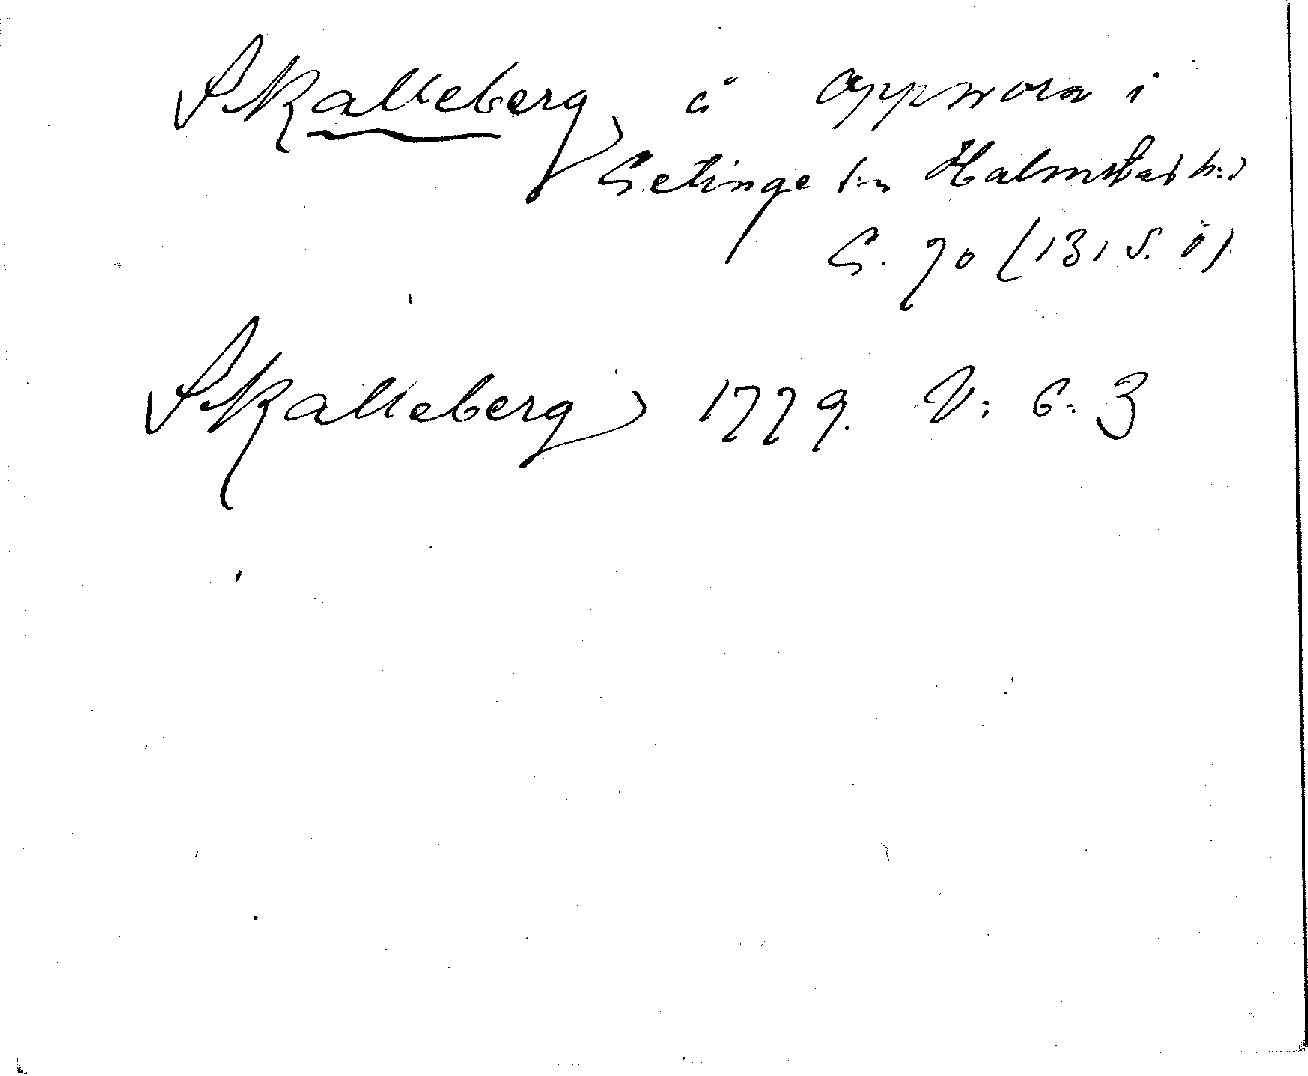 Skalleberg, å Oppwora i
Getinge sn Halmstads h:d
G. 70 (131 S. Ö)
Skalleberg, 1779. V: 6: 3